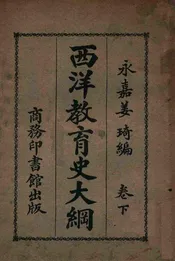 永嘉姜琦編
卷下
西洋教育史大綱
商務印書館出版